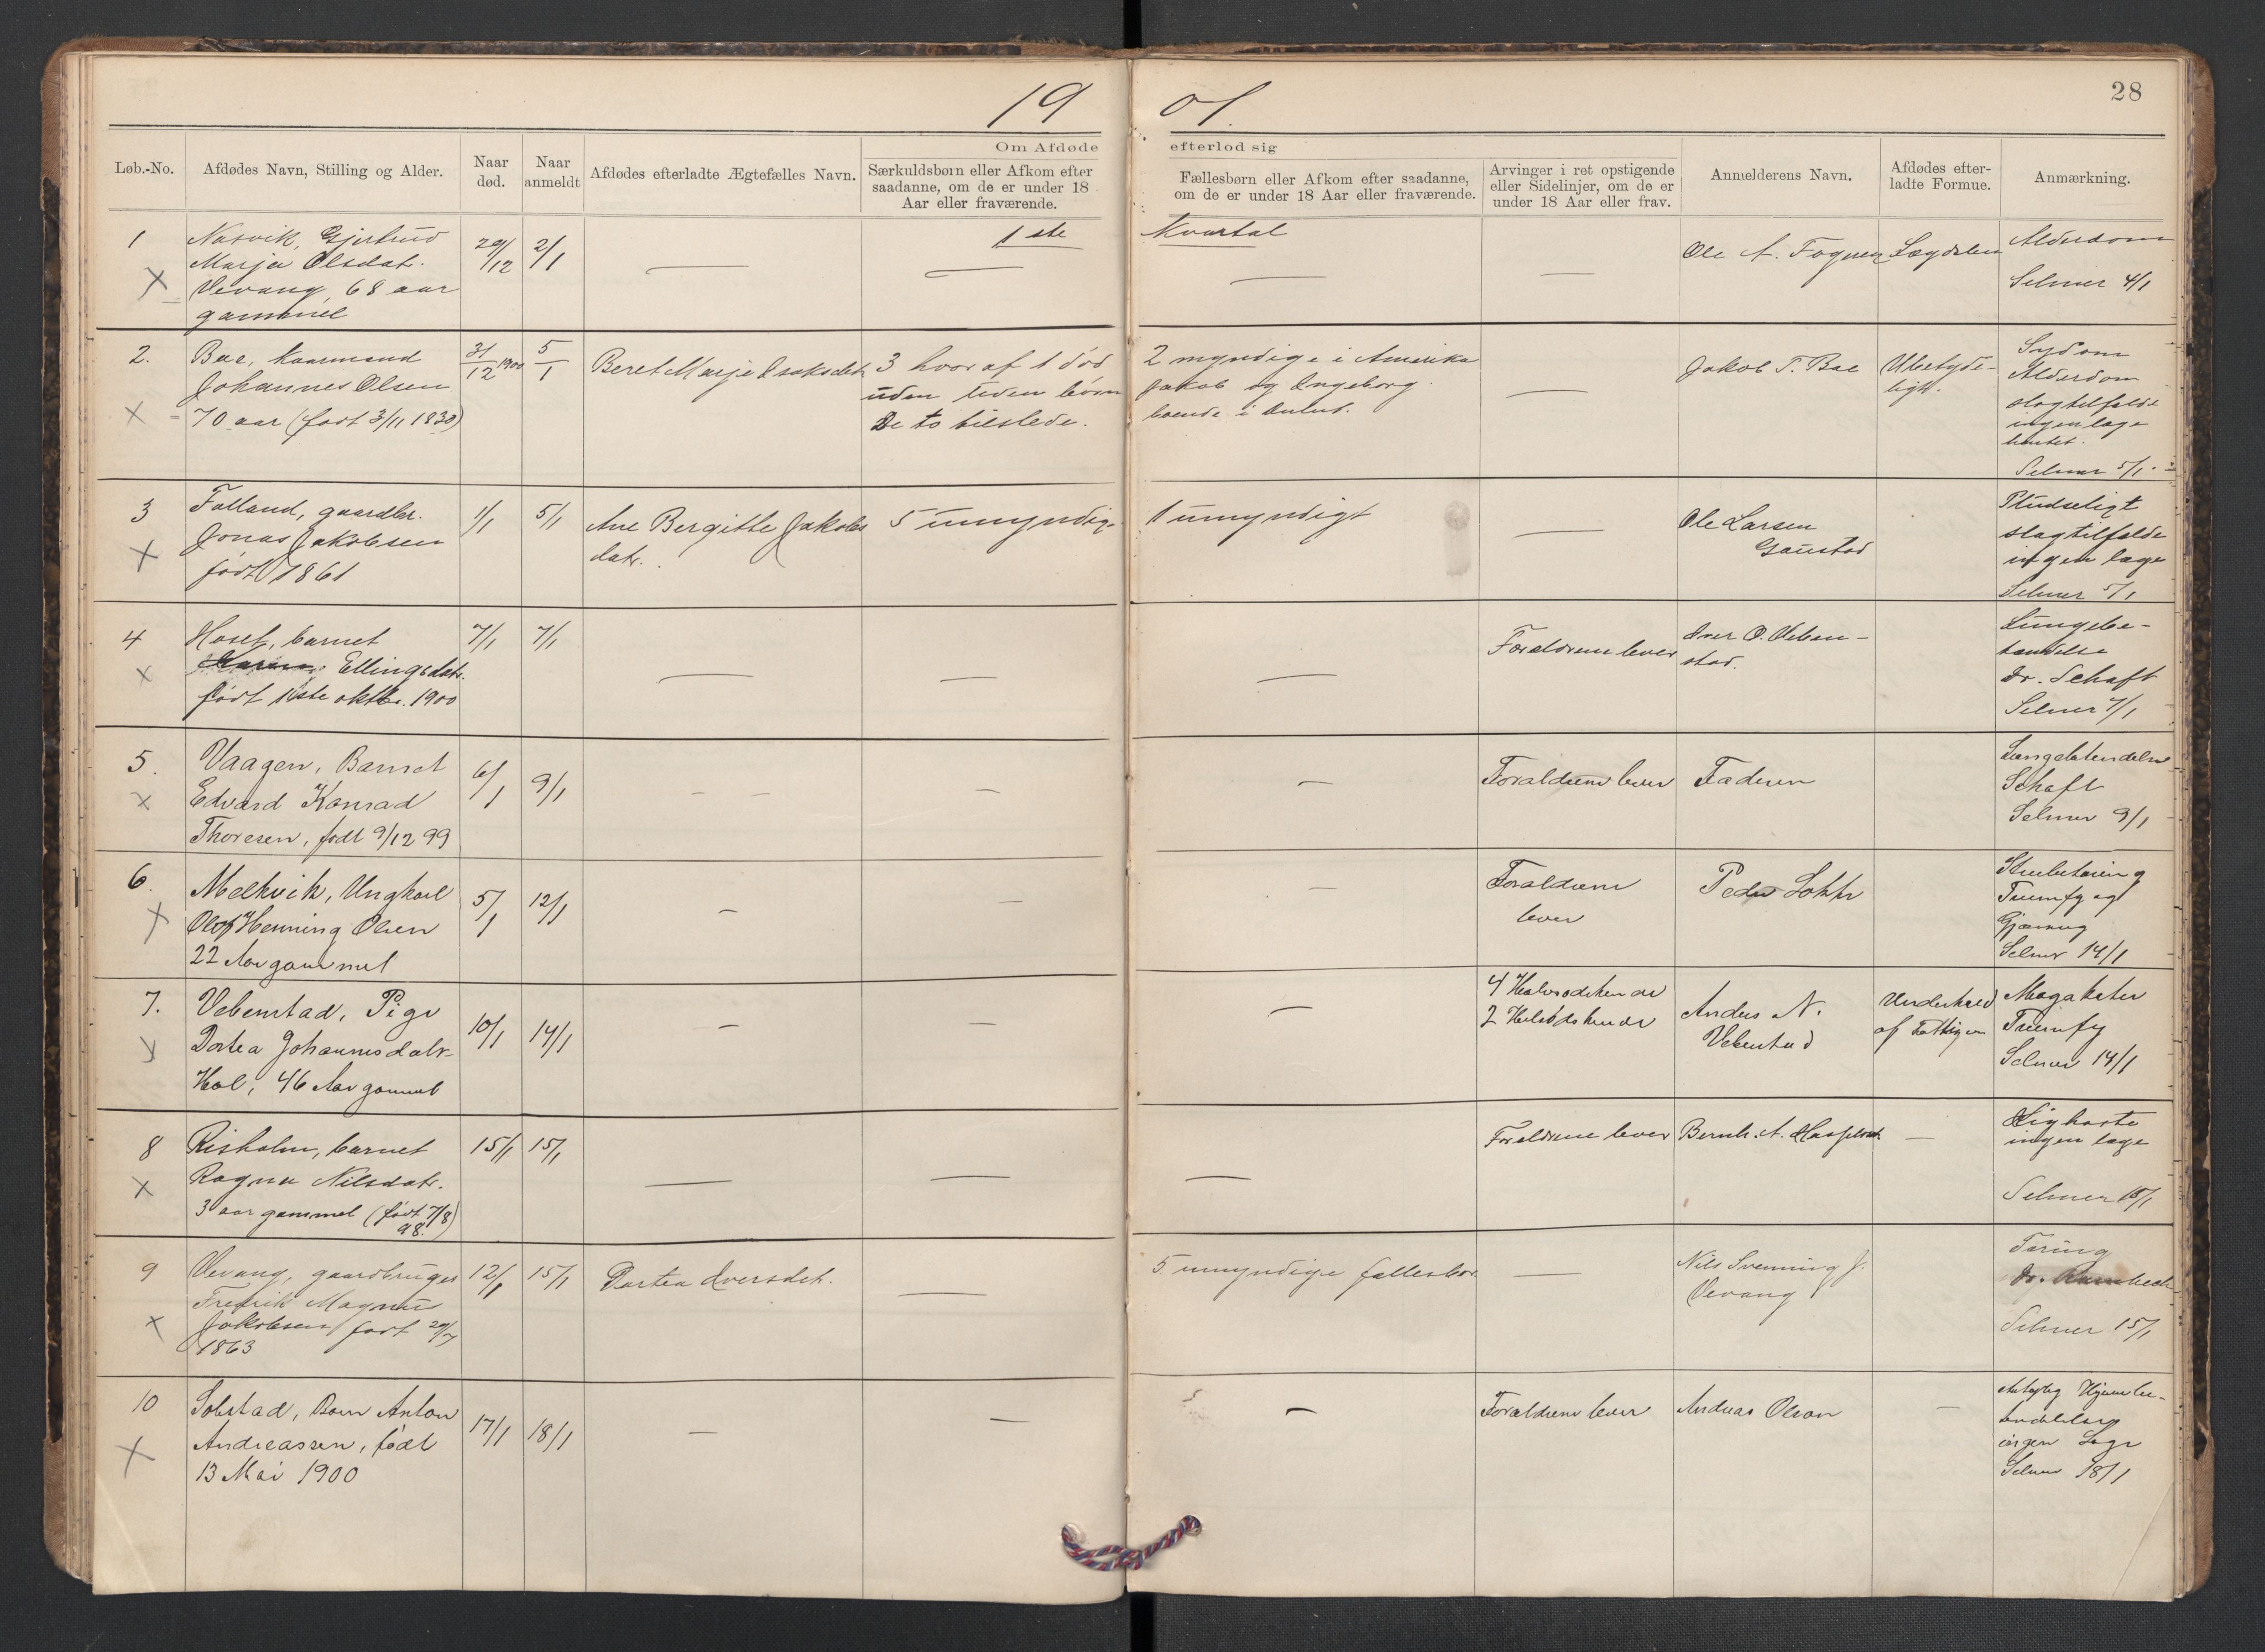 19 01.
28
Om Afdøde efterlod sig
Løb.-No.
Afdødes Navn, Stilling og Alder.
Naar død.
Naar anmeldt
Afdødes efterladte Ægtefælles Navn.
Særkuldsbørn eller Afkom efter
saadanne, om de er under 18
Aar eller fraværende.
Fællesbørn eller Afkom efter saadanne,
om de er under 18 Aar eller fraværende.
Arvinger i ret opstigende
eller Sidelinjer, om de er
under 18 Aar eller frav.
Anmelderens Navn.
Afdødes efter-
ladte Formue.
Anmærkning.
1ste Kvartal
1
Nasvik, Gjertrud
Marja Olsdatr.
Vevang, 68 aar
gammel
29/12
2/1
—
—
—
—
Ole A. Fognen
Lægdslem
Alderdom
Selmer 4/1
2.
Bae, kaarmand
Johannes Olsen
70 aar (født 3/11 1830)
31/12 1900
5/1
Beret Marje Isaksdatr
3 hvoraf 1 død
uden
børn
De to tilstede.
2 myndige i Amerika
Jakob og Ingeborg
boende i
—
Jakob T. Bae
Ubetyde-
ligt.
Sygdom
Alderdom
slagtilfælde
ingen læge
hentet.
Selmer 5/1
3
Falland, gaardbr.
Jonas Jakobsen
født 1861
1/1
5/1
Ane Bergitte Jakobs
datr.
5 umyndige
1 umyndigt
—
Ole Larsen
Gaustad
Pludseligt
slagtilfælde
ingen læge
Selmer 5/1
4
Hoset, barnet
Ellingsdatr.
født 1ste oktbr. 1900
7/1
7/1
—
—
—
Forældrene lever
Iver O. Veben-
stad.
Lungebe-
tændelse
Dr. Schaft
Selmer 7/1
5.
Vaagen, Barnet
Edvard Konrad
Thoresen, født 9/12 99
6/1
9/1
— —
—
—
Forældrene lever
Faderen
Lungebetændelse
Schaft
Selmer 9/1
6.
Melkvik, Ungkarl
Olof Henning Olsen
22 Aar gammel
5/1
12/1
—
—
—
Forældrene
lever
Peder
Gjæring
Selmer 14/1
7.
Vebenstad, Pige
Dortea Johannesdatr
Hol, 46 Aar gammel
10/1
14/1
—
—
—
4 Halvsødskende
2 Helsødskende
Anders N.
Vebenstad
Underhold
af Fattigv
Selmer 14/1
8
Risholm, barnet
Ragna Nilsdatr.
3 aar gammel (født 7/8
98.)
15/1
15/1
—
—
—
Forældrene lever
Bernh. A.
—
Kighoste
ingen læge
Selmer 15/1
9
Vevang, gaardbruger
Fredrik Magnus
Jakobsen født 29/7
1863
12/1
15/1
Dortea Iversdatr.
—
5 umyndige fællesbør
—
Nils Svenning J.
Vevang
Tæring
Dr.
Selmer 15/1
10
Solstad, Barn Anton
Andreassen, født
13 Mai 1900
17/1
18/1
—
—
—
Forældrene lever
Andreas Olsen
—
ingen Læge
Selmer 18/1